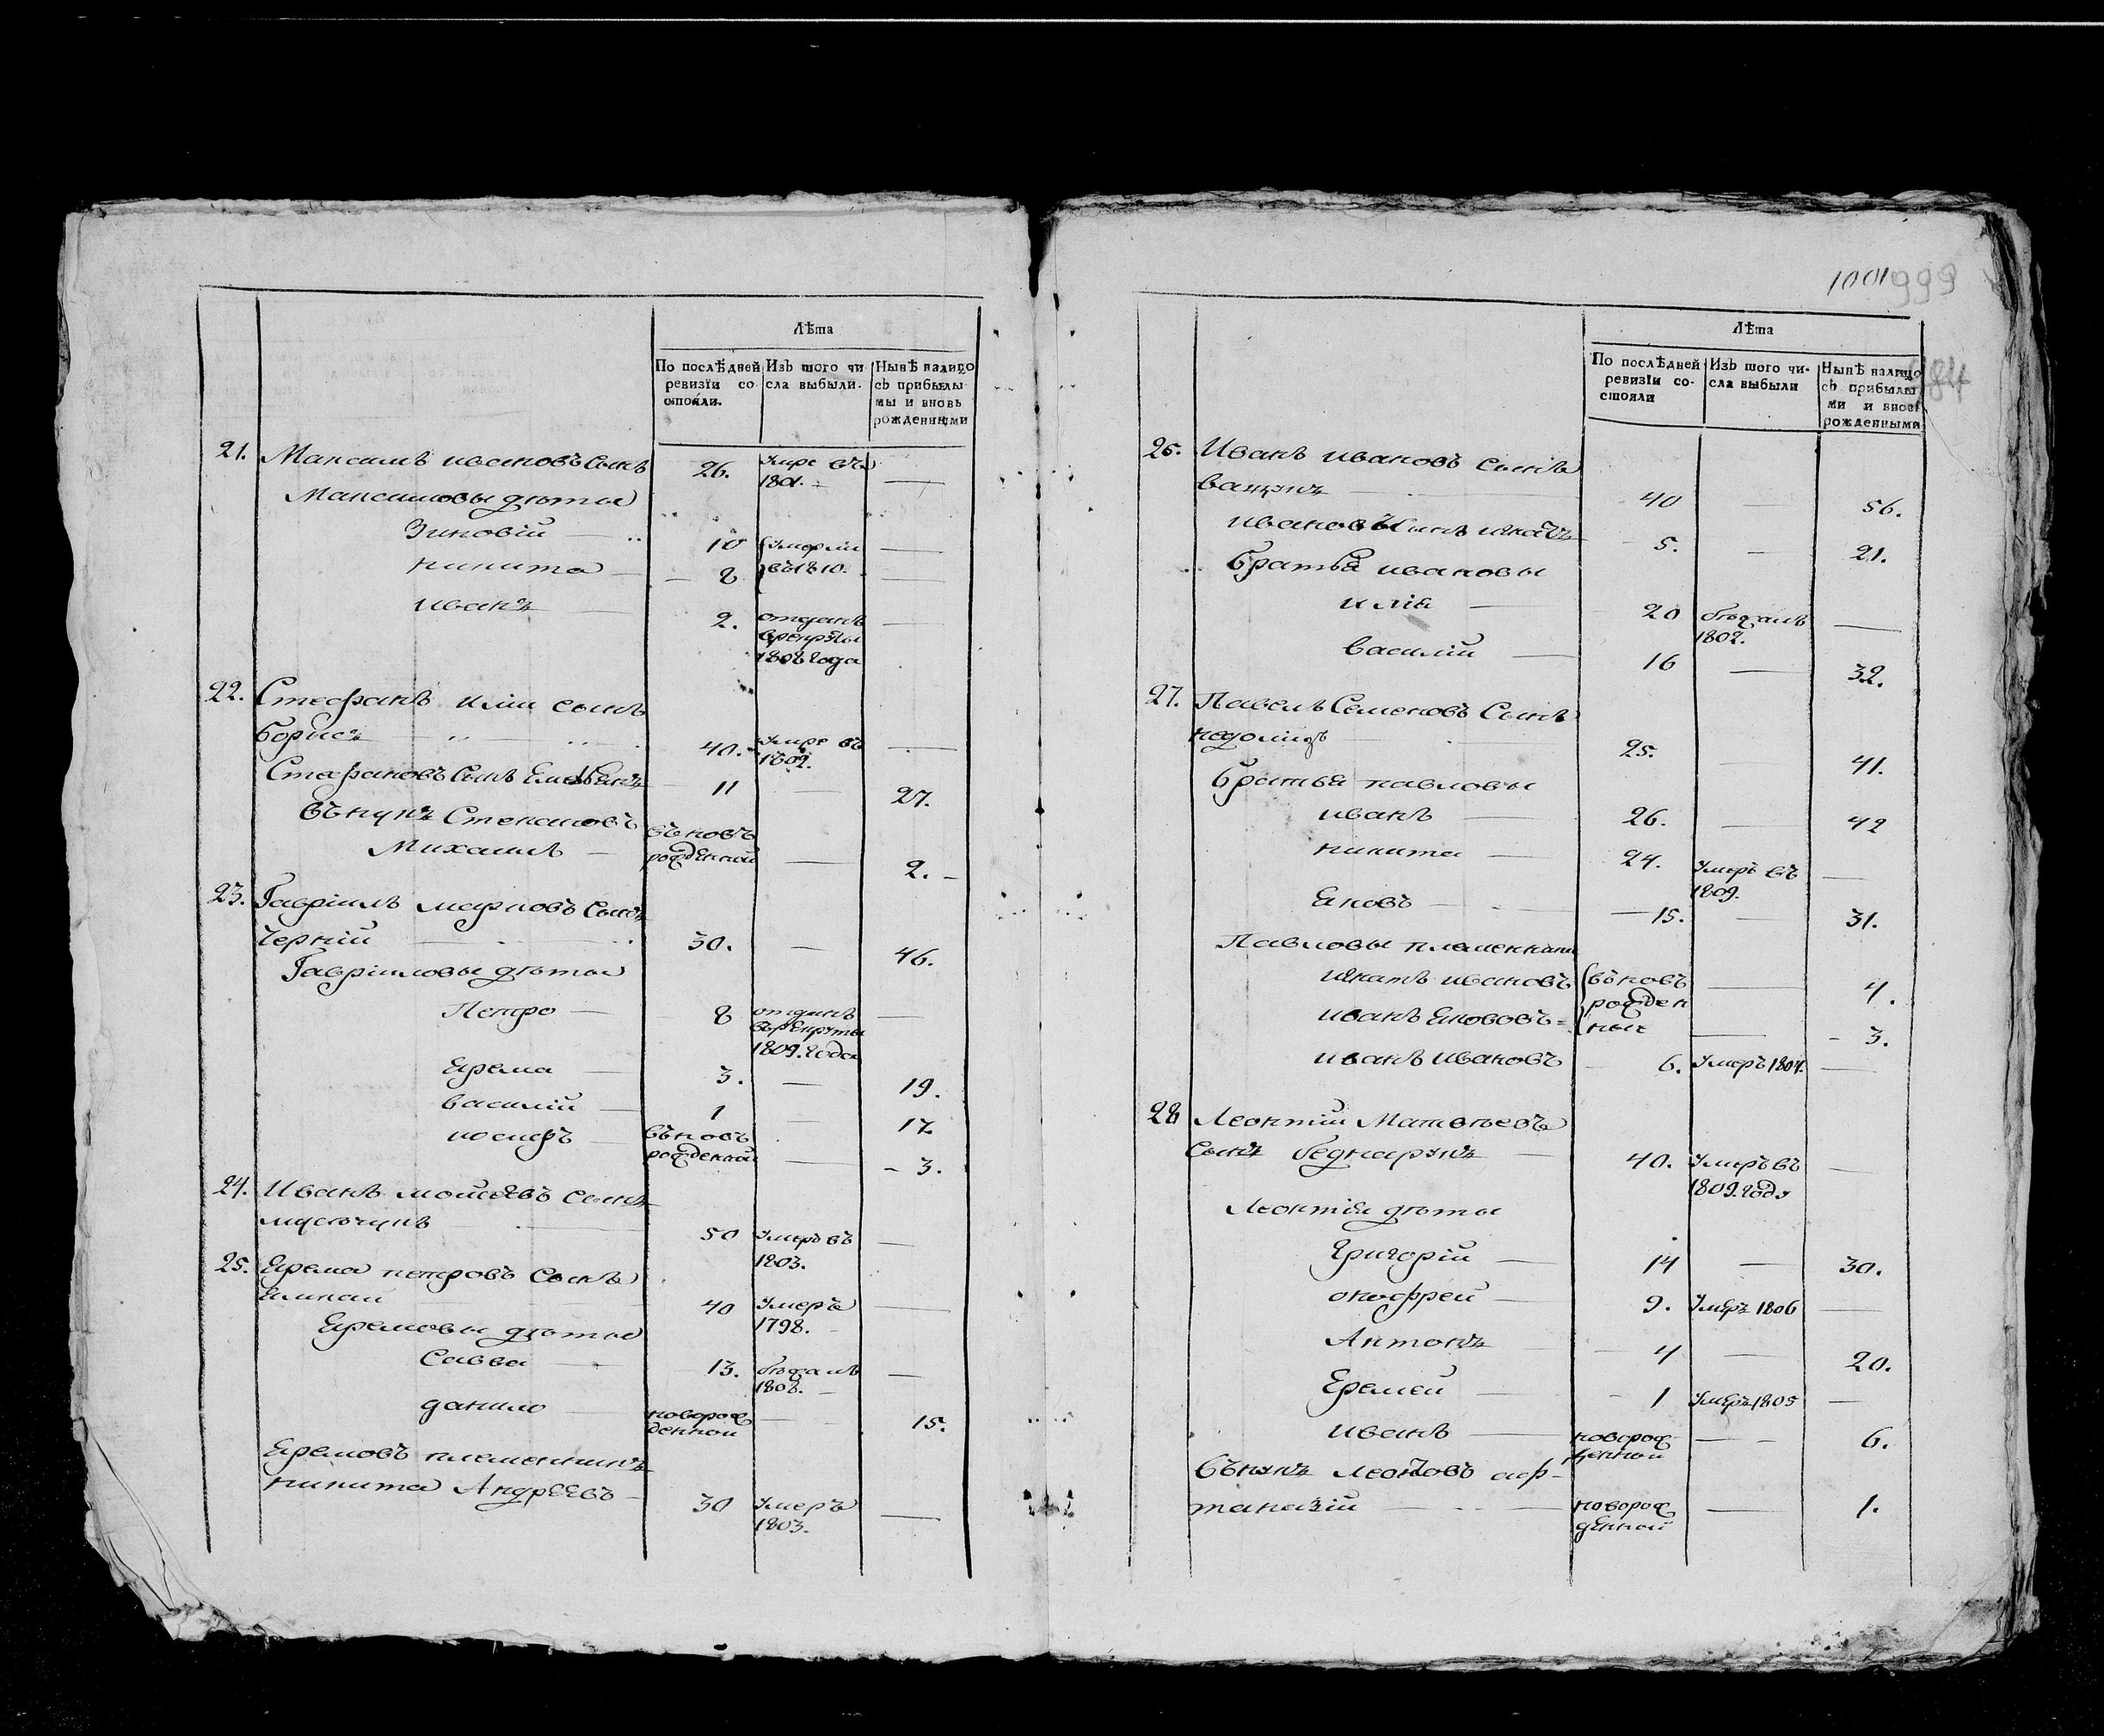 Лѣта
По послѣдней ревизіи со стояли.
Изъ того чи сла выбыли.
Нынѣ налицо съ прибылы ми и вновь рожденными
21. Максимъ ивановъ Сынъ 26. умре въ 1801. —
Максимовы дѣты
Зиновій — 10 умерли —
никита — 8 въ 1810. —
иванъ — 2. отданъ —
врекруты
1808 года
22. Стефанъ или сынъ
борисъ 40. умре въ —
1802.
Стефановъ Сынъ Емельянъ 11 — 27.
въкукъ Степановъ въновъ
Михаилъ — рожденный — 2.
23. Гавріилъ марковъ Сынъ
Черній — 30. — 46.
Гавріиловы дѣты
Петро — 8 отданъ —
върекруты
1809. года
Ярема — 3. — 19.
василій — 1 — 17.
иосифъ — въновъ
рожденный — 3.
24. Иванъ мойсѣевъ сынъ
50 умеръ въ —
1803.
25. Ярема петровъ Сынъ
40 умеръ —
1798.
Яремовы дѣты
Савва — 13. бѣжалъ —
1808.
данило — новорож — 15.
денной
Яремовъ племенникъ
никита Андреевъ — 30 умеръ —
1803.
1001 999
84
Лѣта
По послѣдней ревизіи со- стояли
Изъ того чи- сла выбыли
Нынѣ налицо съ прибылы ми и вновь рожденными
25. Иванъ ивановъ сынъ
40 — 56.
ивановъ Сынъ игнатъ 5. — 21.
братья ивановы
илія — 20 бѣжалъ —
1802.
василій — 16 — 32.
27. Павелъ Семеновъ Сынъ
25. — 41.
братья павловы
иванъ — 26. — 42
никита — 24. умеръ въ —
1809.
Яковъ — 15. — 31.
Павловы племенники
игнатъ ивановъ въновъ — 4.
рожден
иванъ Якововъ ные — 3.
иванъ ивановъ 6. умеръ 1804. —
28 Леонтій Матвѣевъ
сынъ беднарукъ — 40. умеръ въ —
1809. году
Леонтія дѣты
Григорій — 14 — 30.
онофрей — 9. умеръ 1806 —
Антонъ — 4 — 20.
Еремей — 1 умеръ 1805 —
иванъ — новорож — 6.
денной
въкукъ леонтовъ аф-
таназій — новорож — 1.
денной